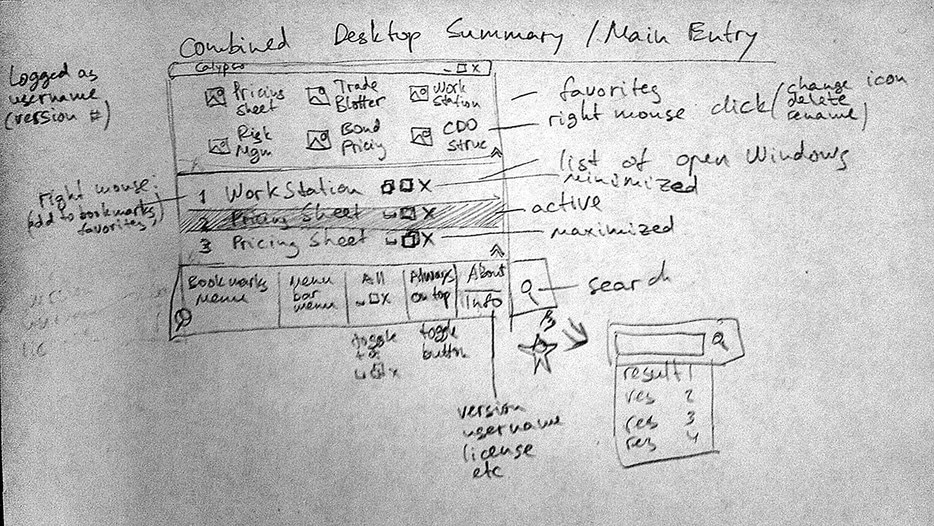 Combined Desktop Summary / Main Entry
Logged as
username
(version #)
Calypso
Pricing
Sheet
Trade
Blotter
Work
Station
Risk
Mgm
Bond
Pricing
CDO
Struc
favorites
right mouse click (change icon
delete
rename)
list of open Windows
right mouse:
(add to bookmarks,
favorites)
1 WorkStation X
minimized
2 Pricing Sheet X
active
3 Pricing Sheet X
maximized
Bookmarks
Menu
Menu
bar
menu
All
X
Always
on top
About
Info
search
toggle
X
toggle
button
version
username
license
etc
result 1
res 2
res 3
res 4